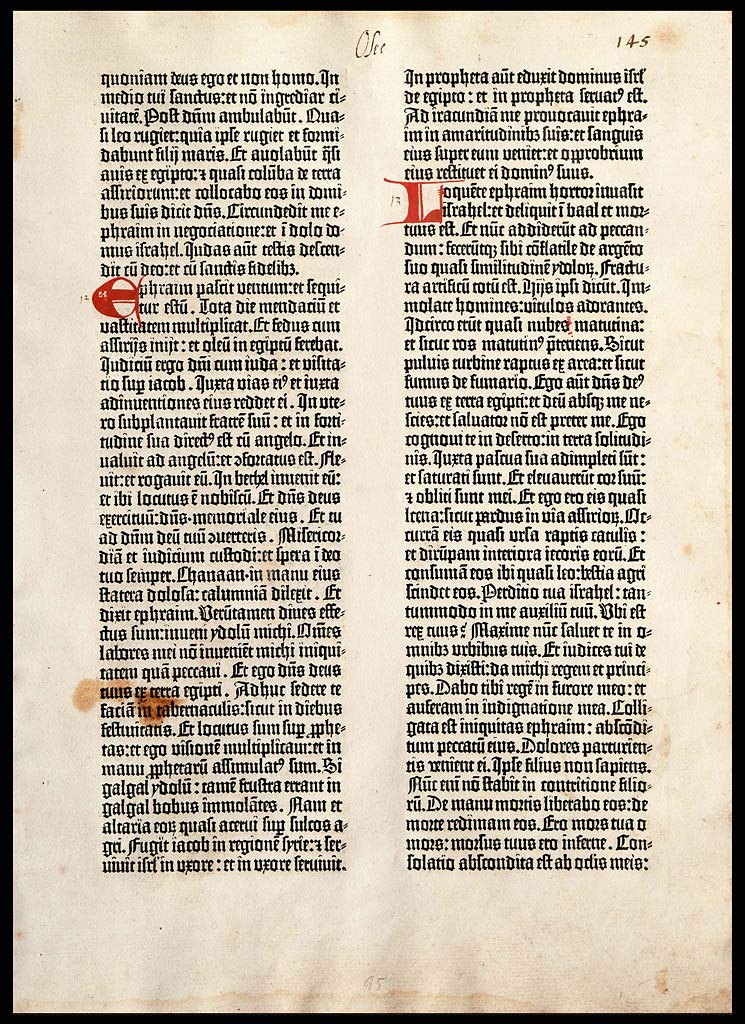 Osee
145
quoniam deus ego et non homo. In
medio tui sanctus: et nō ingrediar ci-
uitatē. Post dn̄m ambulabūt. Qua-
si leo rugiet: quia ipse rugiet et formi-
dabunt filij maris. Et auolabūt q̄si
auis ex egipto: ⁊ quasi colūba de terra
assiriorum: et collocabo eos in domi-
bus suis dicit dn̄s. Circundedit me e-
phraim in negociatione: et ī dolo do-
mus israhel. Iudas aūt testis descen-
dit cū deo: et cū sanctis fidelibꝫ.
12 Ephraim pascit ventum: et sequi-
tur estū. Tota die mendaciū et
vastitatem multiplicat. Et fedus cum
assirijs inijt: et oleū in egiptū ferebat.
Iudiciū ergo dn̄i cum iuda: et visita-
tio suꝑ iacob. Iuxta vias eiꝰ et iuxta
adinuentiones eius reddet ei. In vte-
ro subplantauit fratrē suū: et in forti-
tudine sua directꝰ est cū angelo. Et in-
ualuit ad angelū: et ꝯfortatus est. Fle-
uit: et rogauit eū. In bethel inuenit eū:
et ibi locutus ē nobiscū. Et dn̄s deus
exercituū: dn̄s memoriale eius. Et tu
ad dn̄m deū tuū ꝯuerteris. Misericor-
diā et iudicium custodi: et spera ī deo
tuo semper. Chanaan in manu eius
statera dolosa: calumniā dilexit. Et
dixit ephraim. Verūtamen diues effe-
ctus sum: inueni ydolū michi. Om̄es
labores mei nō inueniēt michi iniqui-
tatem quā peccaui. Et ego dn̄s deus
tuus ex terra egipti. Adhuc sedere te
faciā in tabernaculis: sicut in diebus
festiuitatis. Et locutus sum suꝑ ꝓphe-
tas: et ego visionē multiplicaui: et in
manu ꝓphetarū assimulatꝰ sum. Si
galgal ydolū: tamē frustra errant in
galgal bobus immolātes. Nam et
altaria eoꝝ quasi acerui suꝑ sulcos a-
gri. Fugit iacob in regionē syrie: ⁊ ser-
uiuit isrl̄ in vxore: et in vxore seruiuit.
In propheta aūt eduxit dominus isrl̄
de egipto: et in propheta seruatꝰ est.
Ad iracundiā me prouocauit ephra-
im in amaritudinibꝫ suis: et sanguis
eius super eum veniet: et opprobrium
eius restituet ei dominꝰ suus.
13 Loquēte ephraim horror inuasit
israhel: et deliquit ī baal et mor-
tuus est. Et nūc addiderūt ad peccan-
dum: fecerūtqꝫ sibi cōflatile de argēto
suo quasi similitudinē ydoloꝝ. Factu-
ra artificū totū est. Hijs ipsi dicūt. Im-
molate homines: vitulos adorantes.
Idcirco erūt quasi nubes matutina:
et sicut ros matutinꝰ p̄teriens. Sicut
puluis turbine raptus ex area: et sicut
fumus de fumario. Ego aūt dn̄s deꝰ
tuus ex terra egipti: et deū absqꝫ me ne-
scies: et saluator nō est preter me. Ego
cognoui te in deserto: in terra solitudi-
nis. Iuxta pascua sua adimpleti sūt:
et saturati sunt. Et eleuauerūt cor suū:
⁊ obliti sunt mei. Et ego ero eis quasi
leena: sicut pardus in via assirioꝝ. Oc-
currā eis quasi vrsa raptis catulis:
et dirūpam interiora iecoris eorū. Et
consumā eos ibi quasi leo: bestia agri
scindet eos. Perditio tua israhel: tan-
tummodo in me auxiliū tuū. Vbi est
rex tuus? Maxime nūc saluet te in o-
mnibꝫ vrbibus tuis. Et iudices tui de
quibꝫ dixisti: da michi regem et princi-
pes. Dabo tibi regē in furore meo: et
auferam in indignatione mea. Colli-
gata est iniquitas ephraim: abscōdi-
tum peccatū eius. Dolores parturien-
tis venient ei. Ipse filius non sapiens.
Nūc eni̅ nō stabit in contritione filio-
rū. De manu mortis liberabo eos: de
morte redimam eos. Ero mors tua o
mors: morsus tuus ero inferne. Con-
solatio abscondita est ab oclis meis:
95